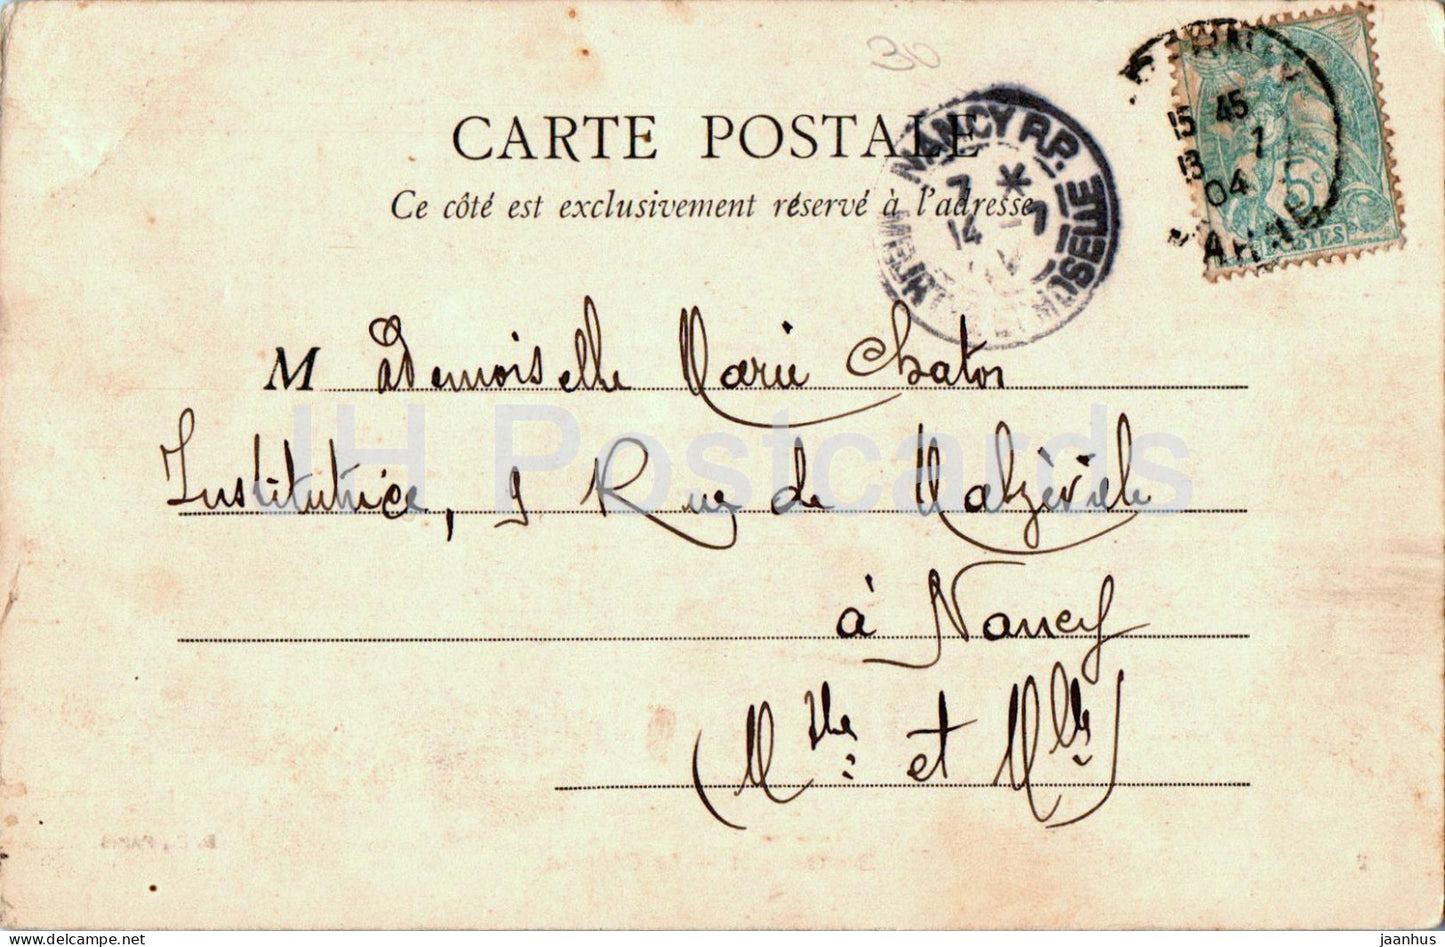 30
CARTE POSTALE
Ce côté est exclusivement réservé à l'adresse
NANCY R.P.
7 * 
14 - 7
MEURTHE ET MOSELLE
15 45
13 7
04
MARNE
5c
POSTES
Mademoiselle Marie Chaton
Institutrice, 9 Rue de Malzéville
à Nancy
(Mthe et Mlle)
JH Postcards
B. C., PARIS
delcampe.net
jaanhus